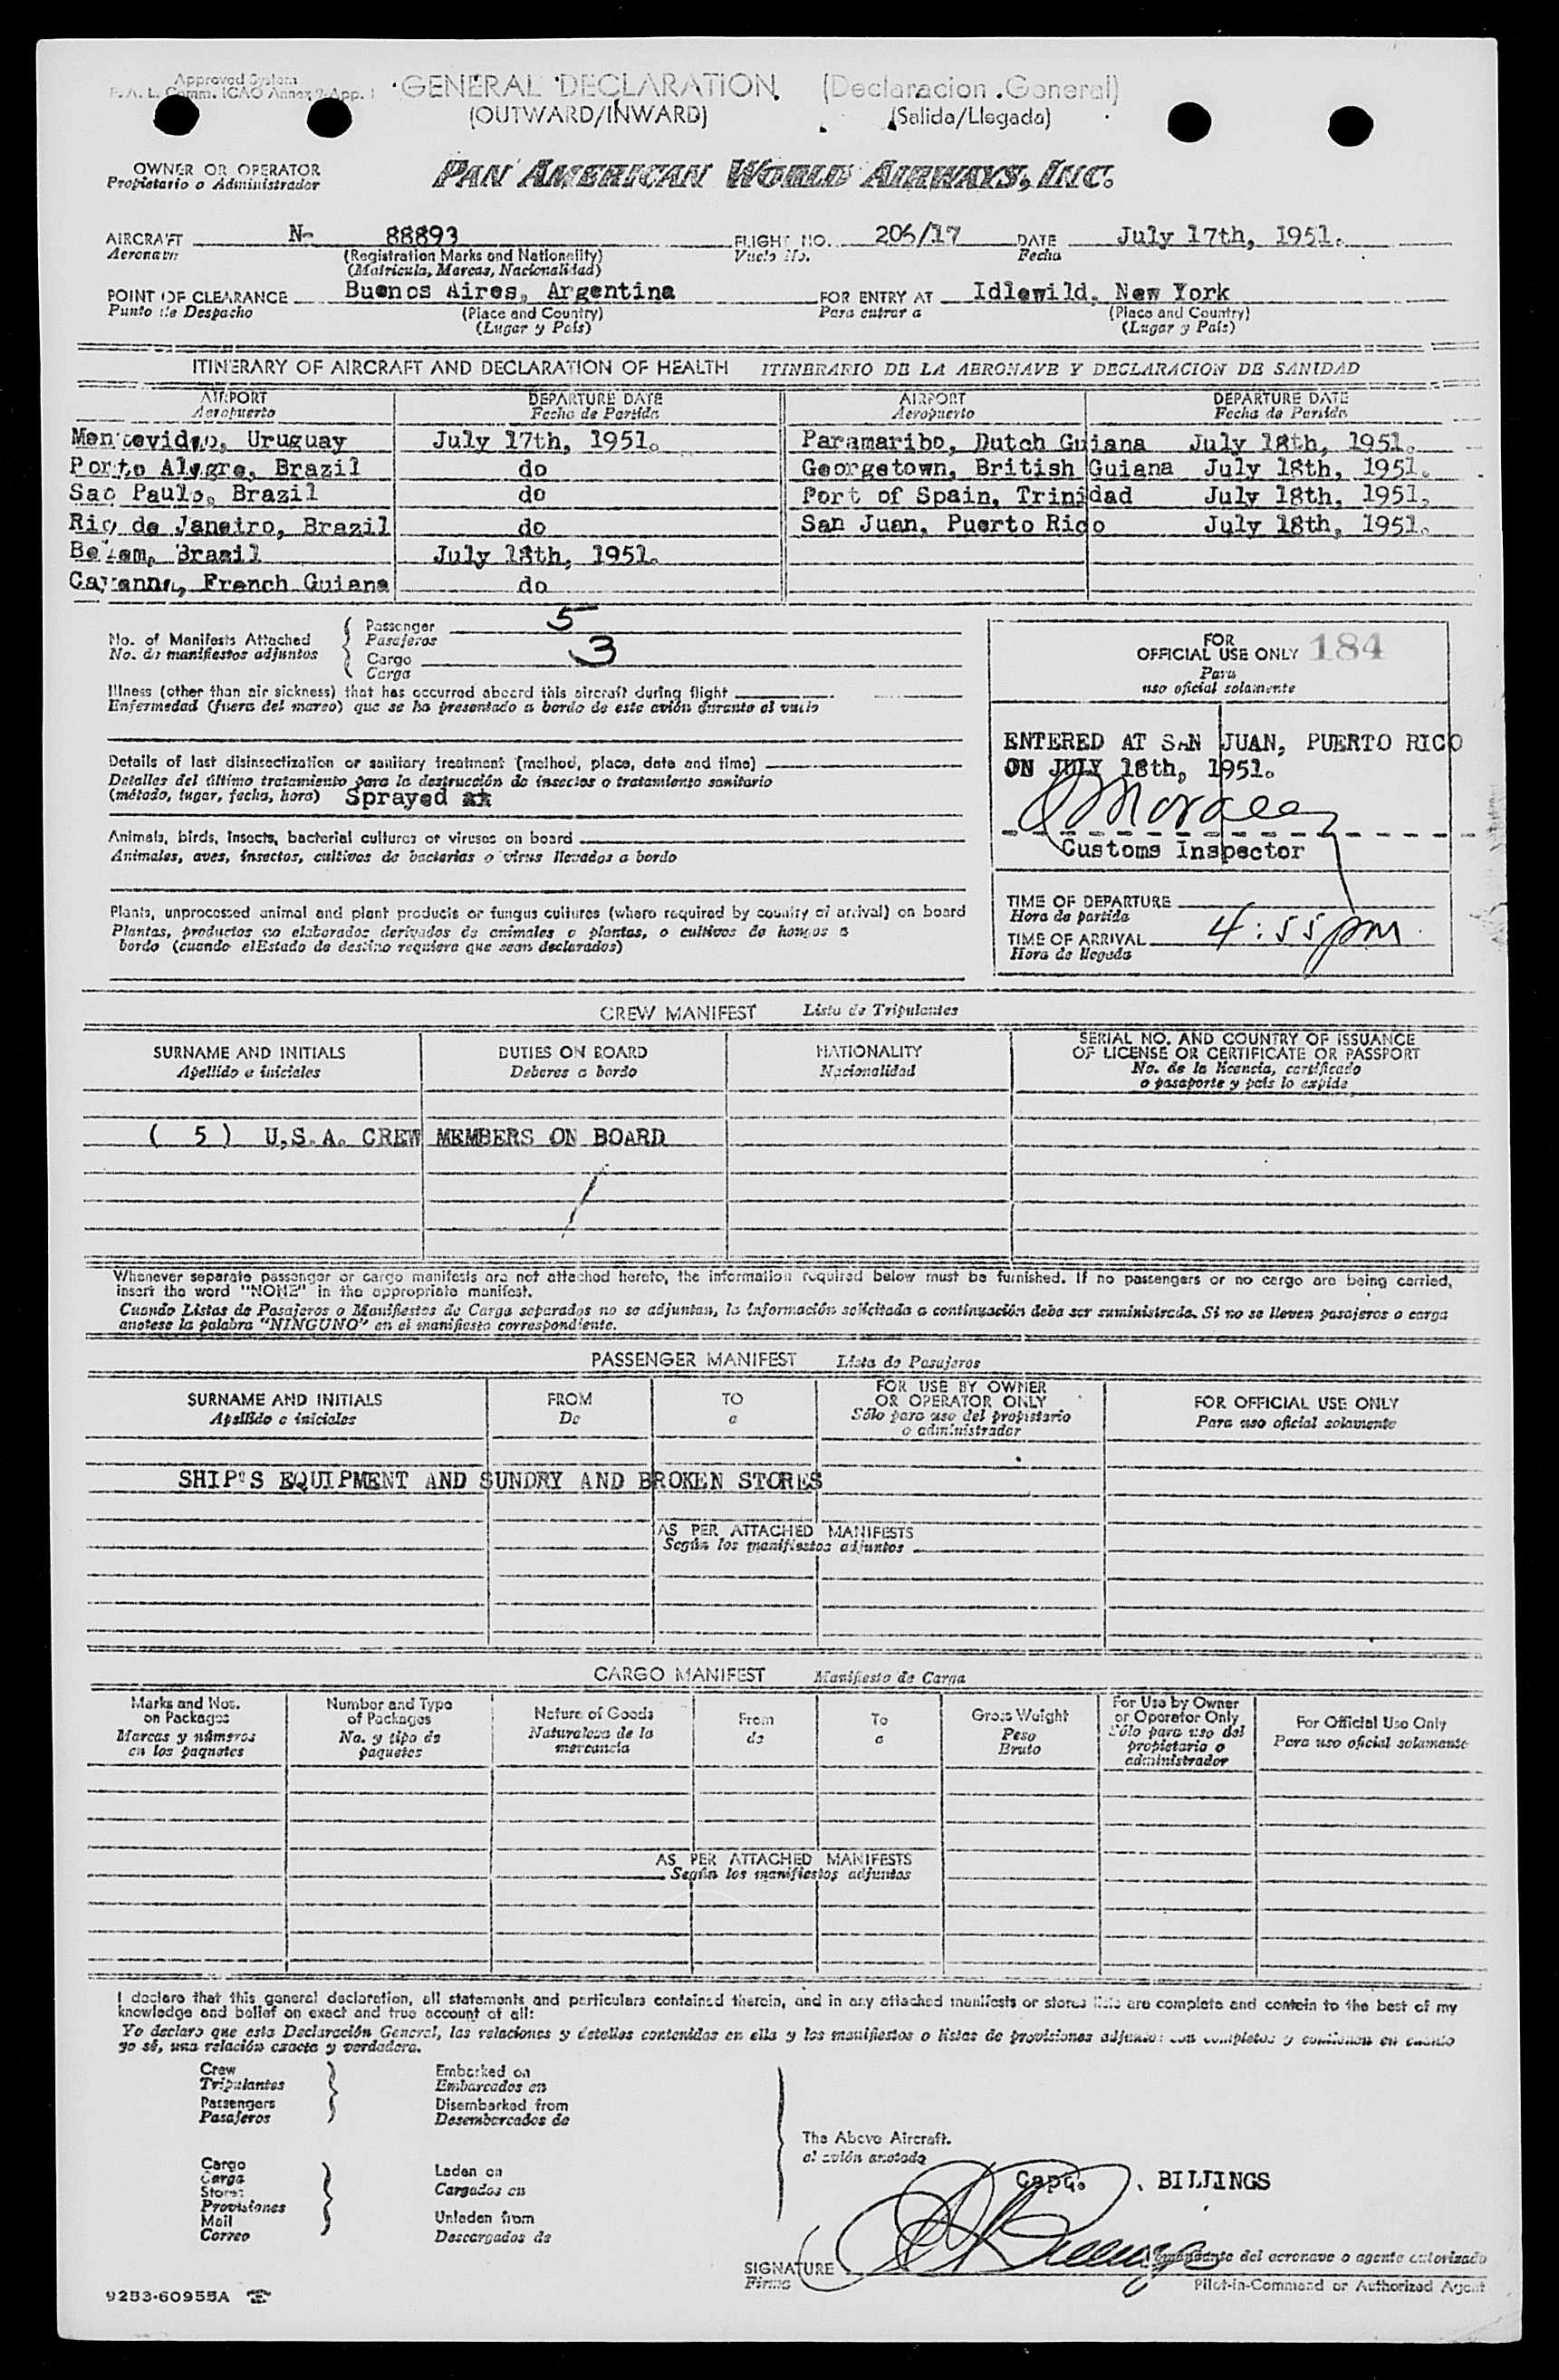 Approved System
F. A. L. Comm. ICAO Annex 9-App. 1
GENERAL DECLARATION (Declaracion General)
(OUTWARD/INWARD) (Salida/Llegada)
OWNER OR OPERATOR
Propietario o Administrador
PAN AMERICAN WORLD AIRWAYS, INC.
AIRCRAFT N- 88893 FLIGHT NO. 206/17 DATE July 17th, 1951.
Aeronave (Registration Marks and Nationality) Vuelo No. Fecha
(Matricula, Marcas, Nacionalidad)
POINT OF CLEARANCE Buenos Aires, Argentina FOR ENTRY AT Idlewild, New York
Punto de Despacho (Place and Country) Para entrar a (Place and Country)
(Lugar y País) (Lugar y País)
ITINERARY OF AIRCRAFT AND DECLARATION OF HEALTH ITINERARIO DE LA AERONAVE Y DECLARACION DE SANIDAD
AIRPORT DEPARTURE DATE AIRPORT DEPARTURE DATE
Aeropuerto Fecha de Partida Aeropuerto Fecha de Partida
Montevideo, Uruguay July 17th, 1951. Paramaribo, Dutch Guiana July 18th, 1951.
Porto Alegre, Brazil do Georgetown, British Guiana July 18th, 1951.
Sao Paulo, Brazil do Port of Spain, Trinidad July 18th, 1951.
Rio de Janeiro, Brazil do San Juan, Puerto Rico July 18th, 1951.
Belem, Brazil July 18th, 1951.
Cayenne, French Guiana do
No. of Manifests Attached Passenger 5
No. de manifiestos adjuntos Pasajeros
Cargo 3
Carga
Illness (other than air sickness) that has occurred aboard this aircraft during flight
Enfermedad (fuera del mareo) que se ha presentado a bordo de este avión durante el vuelo
Details of last disinsectization or sanitary treatment (method, place, date and time)
Detalles del último tratamiento para la destrucción de insectos o tratamiento sanitario
(método, lugar, fecha, hora) Sprayed
Animals, birds, insects, bacterial cultures or viruses on board
Animales, aves, insectos, cultivos de bacterias o virus llevados a bordo
Plants, unprocessed animal and plant products or fungus cultures (where required by country of arrival) on board
Plantas, productos no elaborados derivados de animales o plantas, o cultivos de hongos a
bordo (cuando elEstado de destino requiera que sean declarados)
FOR
OFFICIAL USE ONLY 184
Para
uso oficial solamente
ENTERED AT SAN JUAN, PUERTO RICO
ON JULY 18th, 1951.
Customs Inspector
TIME OF DEPARTURE
Hora de partida
TIME OF ARRIVAL 4:55pm
Hora de llegada
CREW MANIFEST Lista de Tripulantes
SURNAME AND INITIALS DUTIES ON BOARD NATIONALITY SERIAL NO. AND COUNTRY OF ISSUANCE
OF LICENSE OR CERTIFICATE OR PASSPORT
Apellido e iniciales Deberes a bordo Nacionalidad No. de la licencia, certificado
o pasaporte y país lo expide
( 5 ) U.S.A. CREW MEMBERS ON BOARD
Whenever separate passenger or cargo manifests are not attached hereto, the information required below must be furnished. If no passengers or no cargo are being carried,
insert the word "NONE" in the appropriate manifest.
Cuando Listas de Pasajeros o Manifiestos de Carga separados no se adjuntan, la información solicitada a continuación debe ser suministrada. Si no se lleven pasajeros o carga
anotese la palabra "NINGUNO" en el manifiesto correspondiente.
PASSENGER MANIFEST Lista de Pasajeros
SURNAME AND INITIALS FROM TO FOR USE BY OWNER
OR OPERATOR ONLY FOR OFFICIAL USE ONLY
Apellido e iniciales De a Sólo para uso del propietario
o administrador Para uso oficial solamente
SHIP'S EQUIPMENT AND SUNDRY AND BROKEN STORES
AS PER ATTACHED MANIFESTS
Según los manifiestos adjuntos
CARGO MANIFEST Manifiesto de Carga
Marks and Nos.
on Packages
Marcas y números
en los paquetes
Number and Type
of Packages
No. y tipo de
paquetes
Nature of Goods
Naturaleza de la
mercancia
From
de
To
a
Gross Weight
Peso
Bruto
For Use by Owner
or Operator Only
Sólo para uso del
propietario o
administrador
For Official Use Only
Para uso oficial solamente
AS PER ATTACHED MANIFESTS
Según los manifiestos adjuntos
I declare that this general declaration, all statements and particulars contained therein, and in any attached manifests or stores lists are complete and contain to the best of my
knowledge and belief an exact and true account of all:
Yo declaro que esta Declaración General, las relaciones y detalles contenidos en ella y los manifiestos o listas de provisiones adjuntos son completos y contienen en cuanto
yo sé, una relación exacta y verdadera.
Crew Embarked on
Tripulantes Embarcados en
Passengers Disembarked from
Pasajeros Desembarcados de
The Above Aircraft.
al avión anotado
Cargo Laden on
Carga Cargados en
Stores
Provisiones
Mail Unladen from
Correo Descargados de
Capt. BILLINGS
SIGNATURE Comandante del aeronave o agente autorizado
Firma Pilot-in-Command or Authorized Agent
9253-60955A